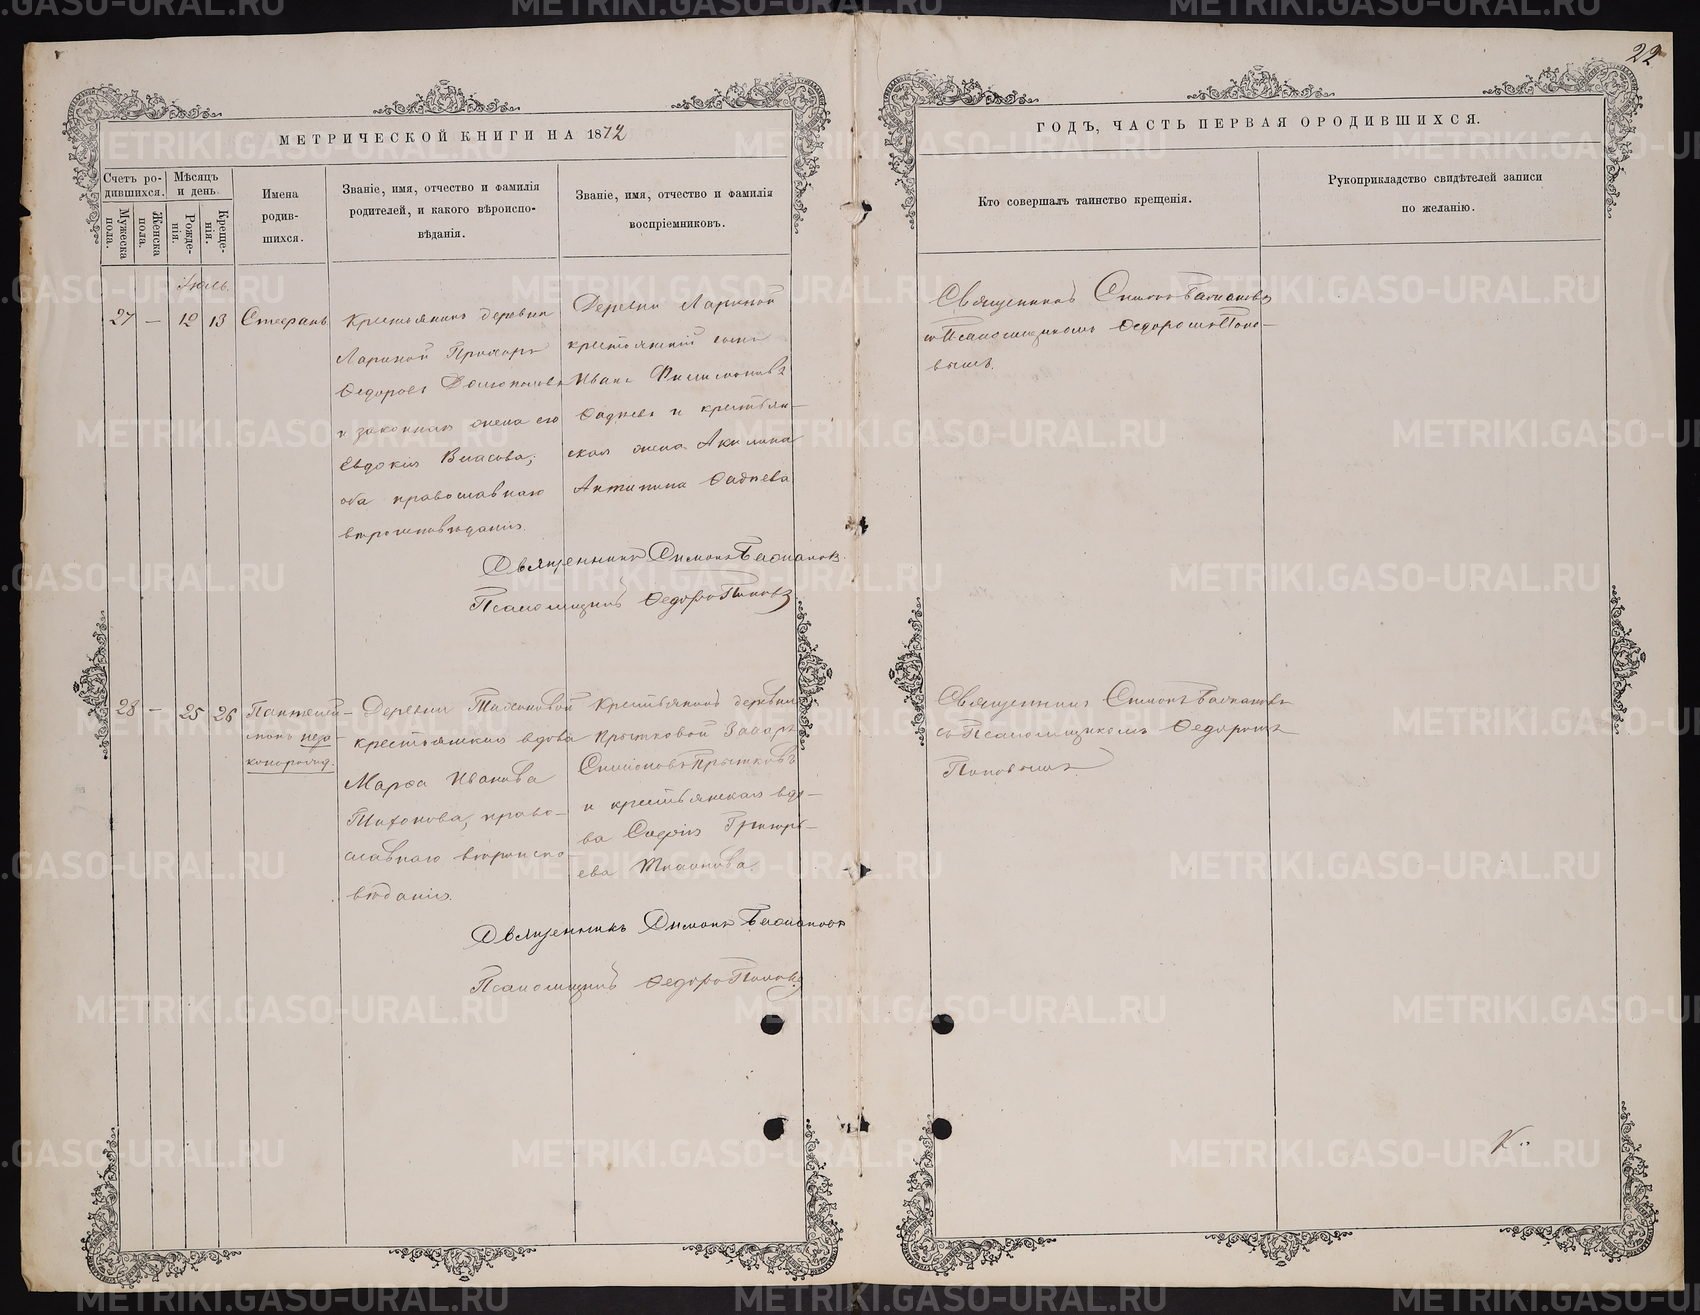 22
МЕТРИЧЕСКОЙ КНИГИ НА 1872
ГОДЪ, ЧАСТЬ ПЕРВАЯ ОРОДИВШИХСЯ.
Счетъ ро-
дившихся.
Мужеска
пола.
Женска
пола.
Мѣсяцъ
и день.
Рожде-
нія.
Креще-
нія.
Имена
родив-
шихся.
Званіе, имя, отчество и фамилія
родителей, и какого вѣроиспо-
вѣданія.
Званіе, имя, отчество и фамилія
воспріемниковъ.
Кто совершалъ таинство крещенія.
Рукоприкладство свидѣтелей записи
по желанію.
Іюль.
27 — 12 13 Стефанъ
Крестьянинъ деревни
Лариной Прохоръ
Ѳедоровъ Долгополовъ
и законная жена его
Евдокія Власова;
оба православнаго
вѣроисповѣданія.
Деревни Лариной
крестьянскій сынъ
Иванъ Филимоновъ
Ѳадѣевъ и крестьян-
ская жена Акилина
Антипина Ѳадѣева
Священникъ Симонъ
съ Псаломщикомъ Ѳедоромъ Попо-
вымъ.
Священникъ Симонъ
Псаломщикъ Ѳедоръ Поповъ
28 — 25 26 Пантелей-
монъ неза-
коннорожд.
Деревни Тихоновой
крестьянская вдова
Марѳа Иванова
Тихонова, право-
славнаго вѣроиспо-
вѣданія.
Крестьянинъ деревни
Прытковой Захаръ
Симоновъ Прытковъ
и крестьянская вдо-
ва Софія Григорь-
ева Тихонова.
Священникъ Симонъ
съ Псаломщикомъ Ѳедоромъ
Поповымъ.
Священникъ Симонъ
Псаломщикъ Ѳедоръ Поповъ
METRIKI.GASO-URAL.RU